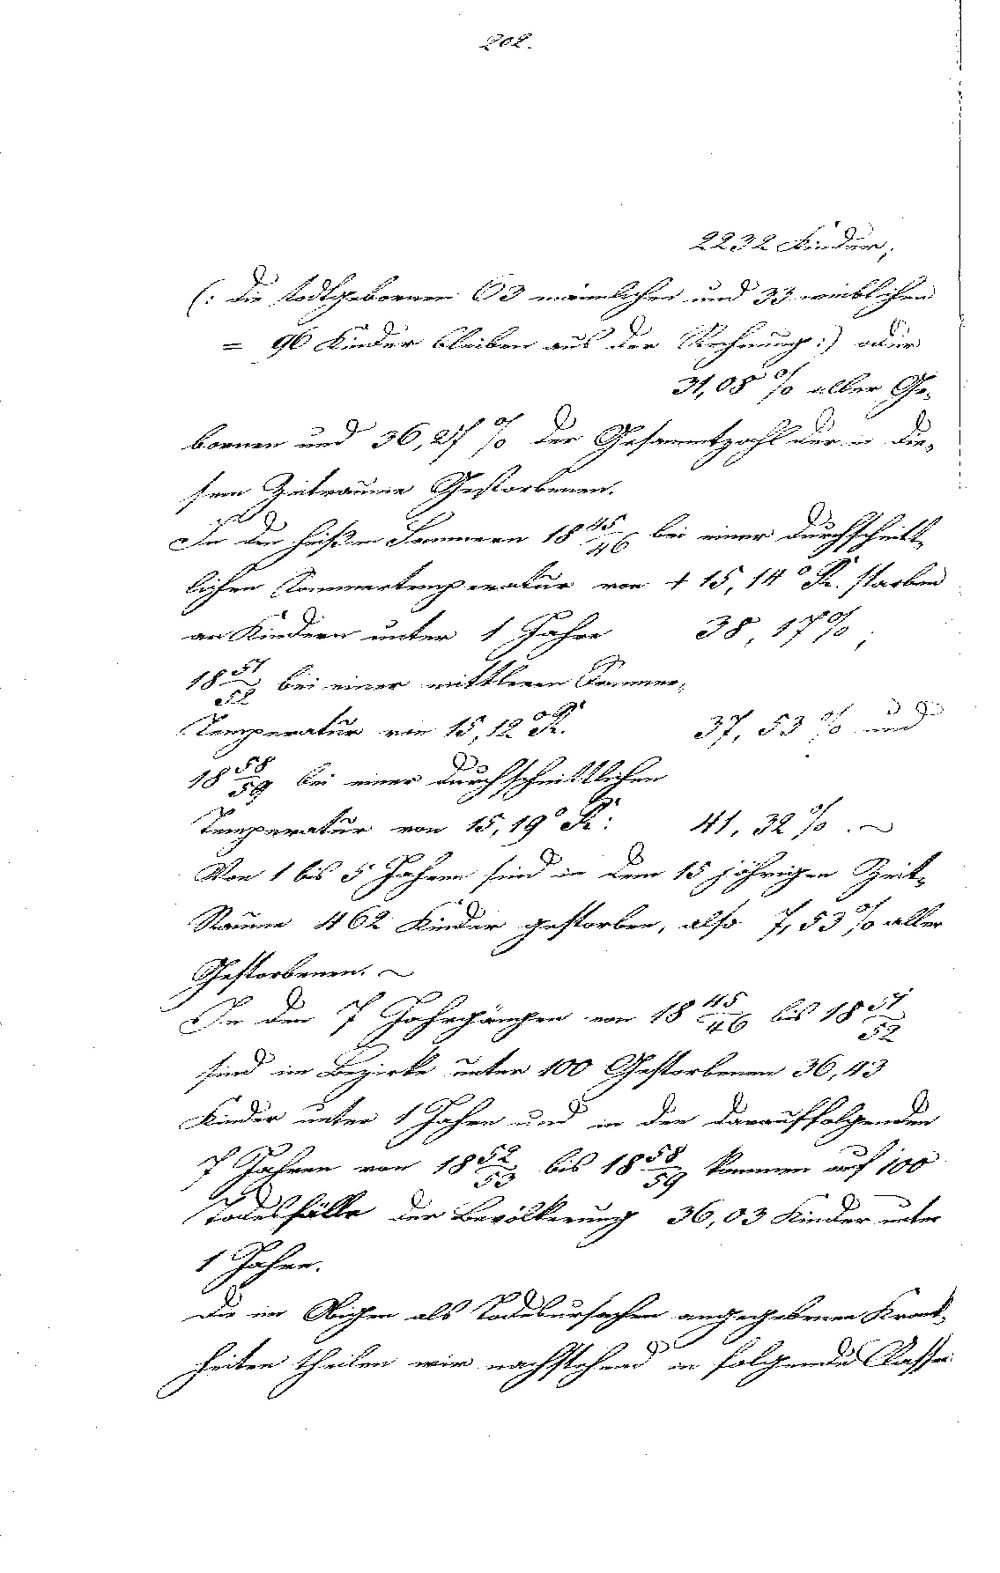 202.
2232 Kinder,
(: die todtgebornen 63 männlichen und 33 weiblichen
= 96 Kinder bleiben aus der Rechnung :) oder
31,08 % aller Ge-
bornen und 36,27 % der Gesammtzahl der in die-
sem Zeitraume Gestorbenen.
In den heißen Sommern 18 45/46 bei einer durchschnitt-
lichen Sommertemperatur von + 15,14° R. starben
an Kindern unter 1 Jahre 38,17 %;
18 51/52 bei einer mittleren Sommer-
Temperatur von 15,12° R. 37,53 % und
18 58/59 bei einer durchschnittlichen
Temperatur von 15,19° R: 41,32 %.
Von 1 bis 5 Jahren sind in dem 15 jährigen Zeit-
Raume 462 Kinder gestorben, also 7,53 % aller
Gestorbenen.
In den 7 Jahrgängen von 18 45/46 bis 18 51/52
sind im Bezirke unter 100 Gestorbenen 36,43
Kinder unter 1 Jahre und in den darauffolgenden
7 Jahren von 18 52/53 bis 18 58/59 kommen auf 100
Todesfälle der Bevölkerung 36,03 Kinder unter
1 Jahre.
Die im Obigen als Todesursachen angegebenen Krank-
heiten theilen wir nachstehend in folgende Classen